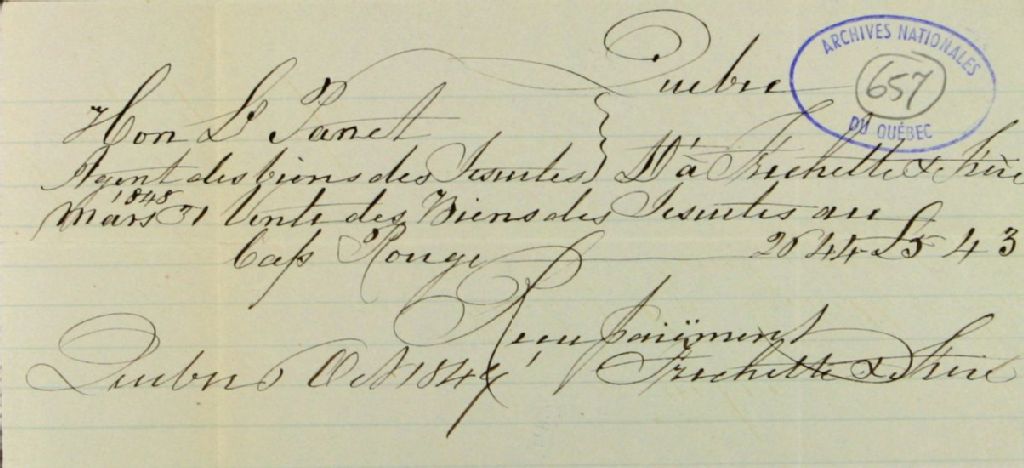 Quebec
ARCHIVES NATIONALES
657
DU QUÉBEC
Hon Ls Panet
Agent des biens des Jesuites } Dt à Frechette & Frère
1848
Mars 31 Vente des Biens des Jesuites au
Cap Rouge 26 44 £5 4 3
Reçu paiement
Quebec 6 Oct 184 Frechette & Frère